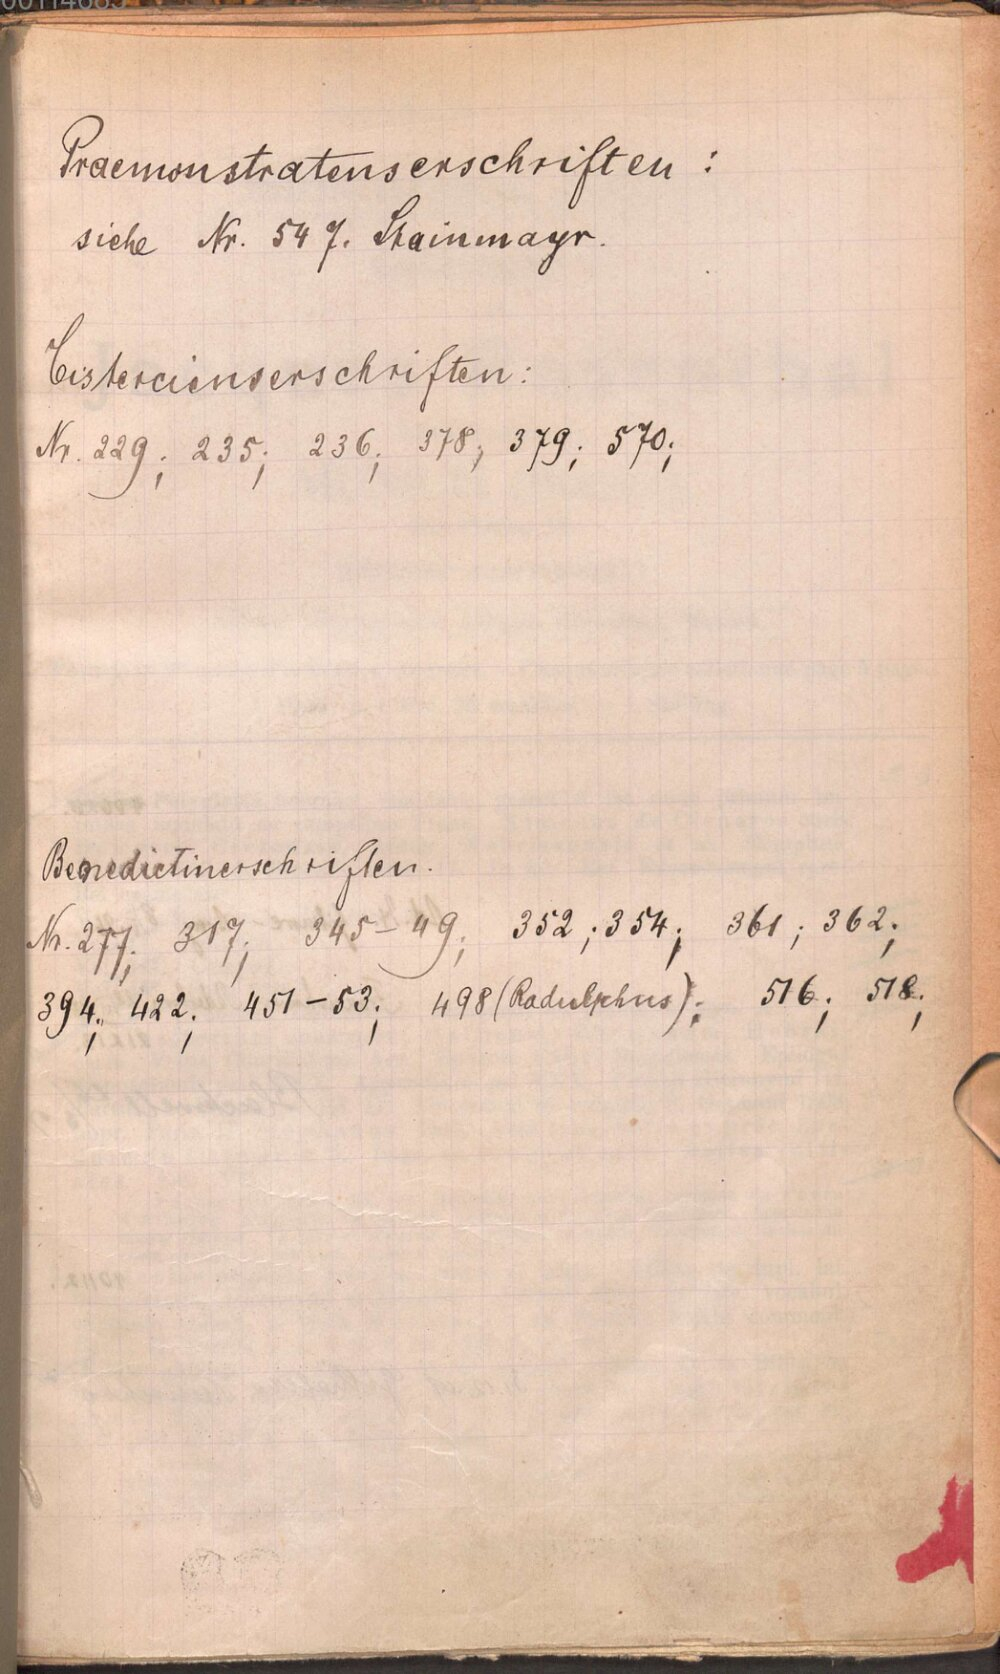 Praemonstratenserschriften :
siehe Nr. 547. Stainmayr.
Cisterzienserschriften:
Nr. 229; 235; 236; 378; 379; 570;
Benedictinerschriften.
Nr. 277; 317; 345-49; 352; 354; 361; 362;
394; 422; 451-53; 498 (Radulphus); 516; 518;